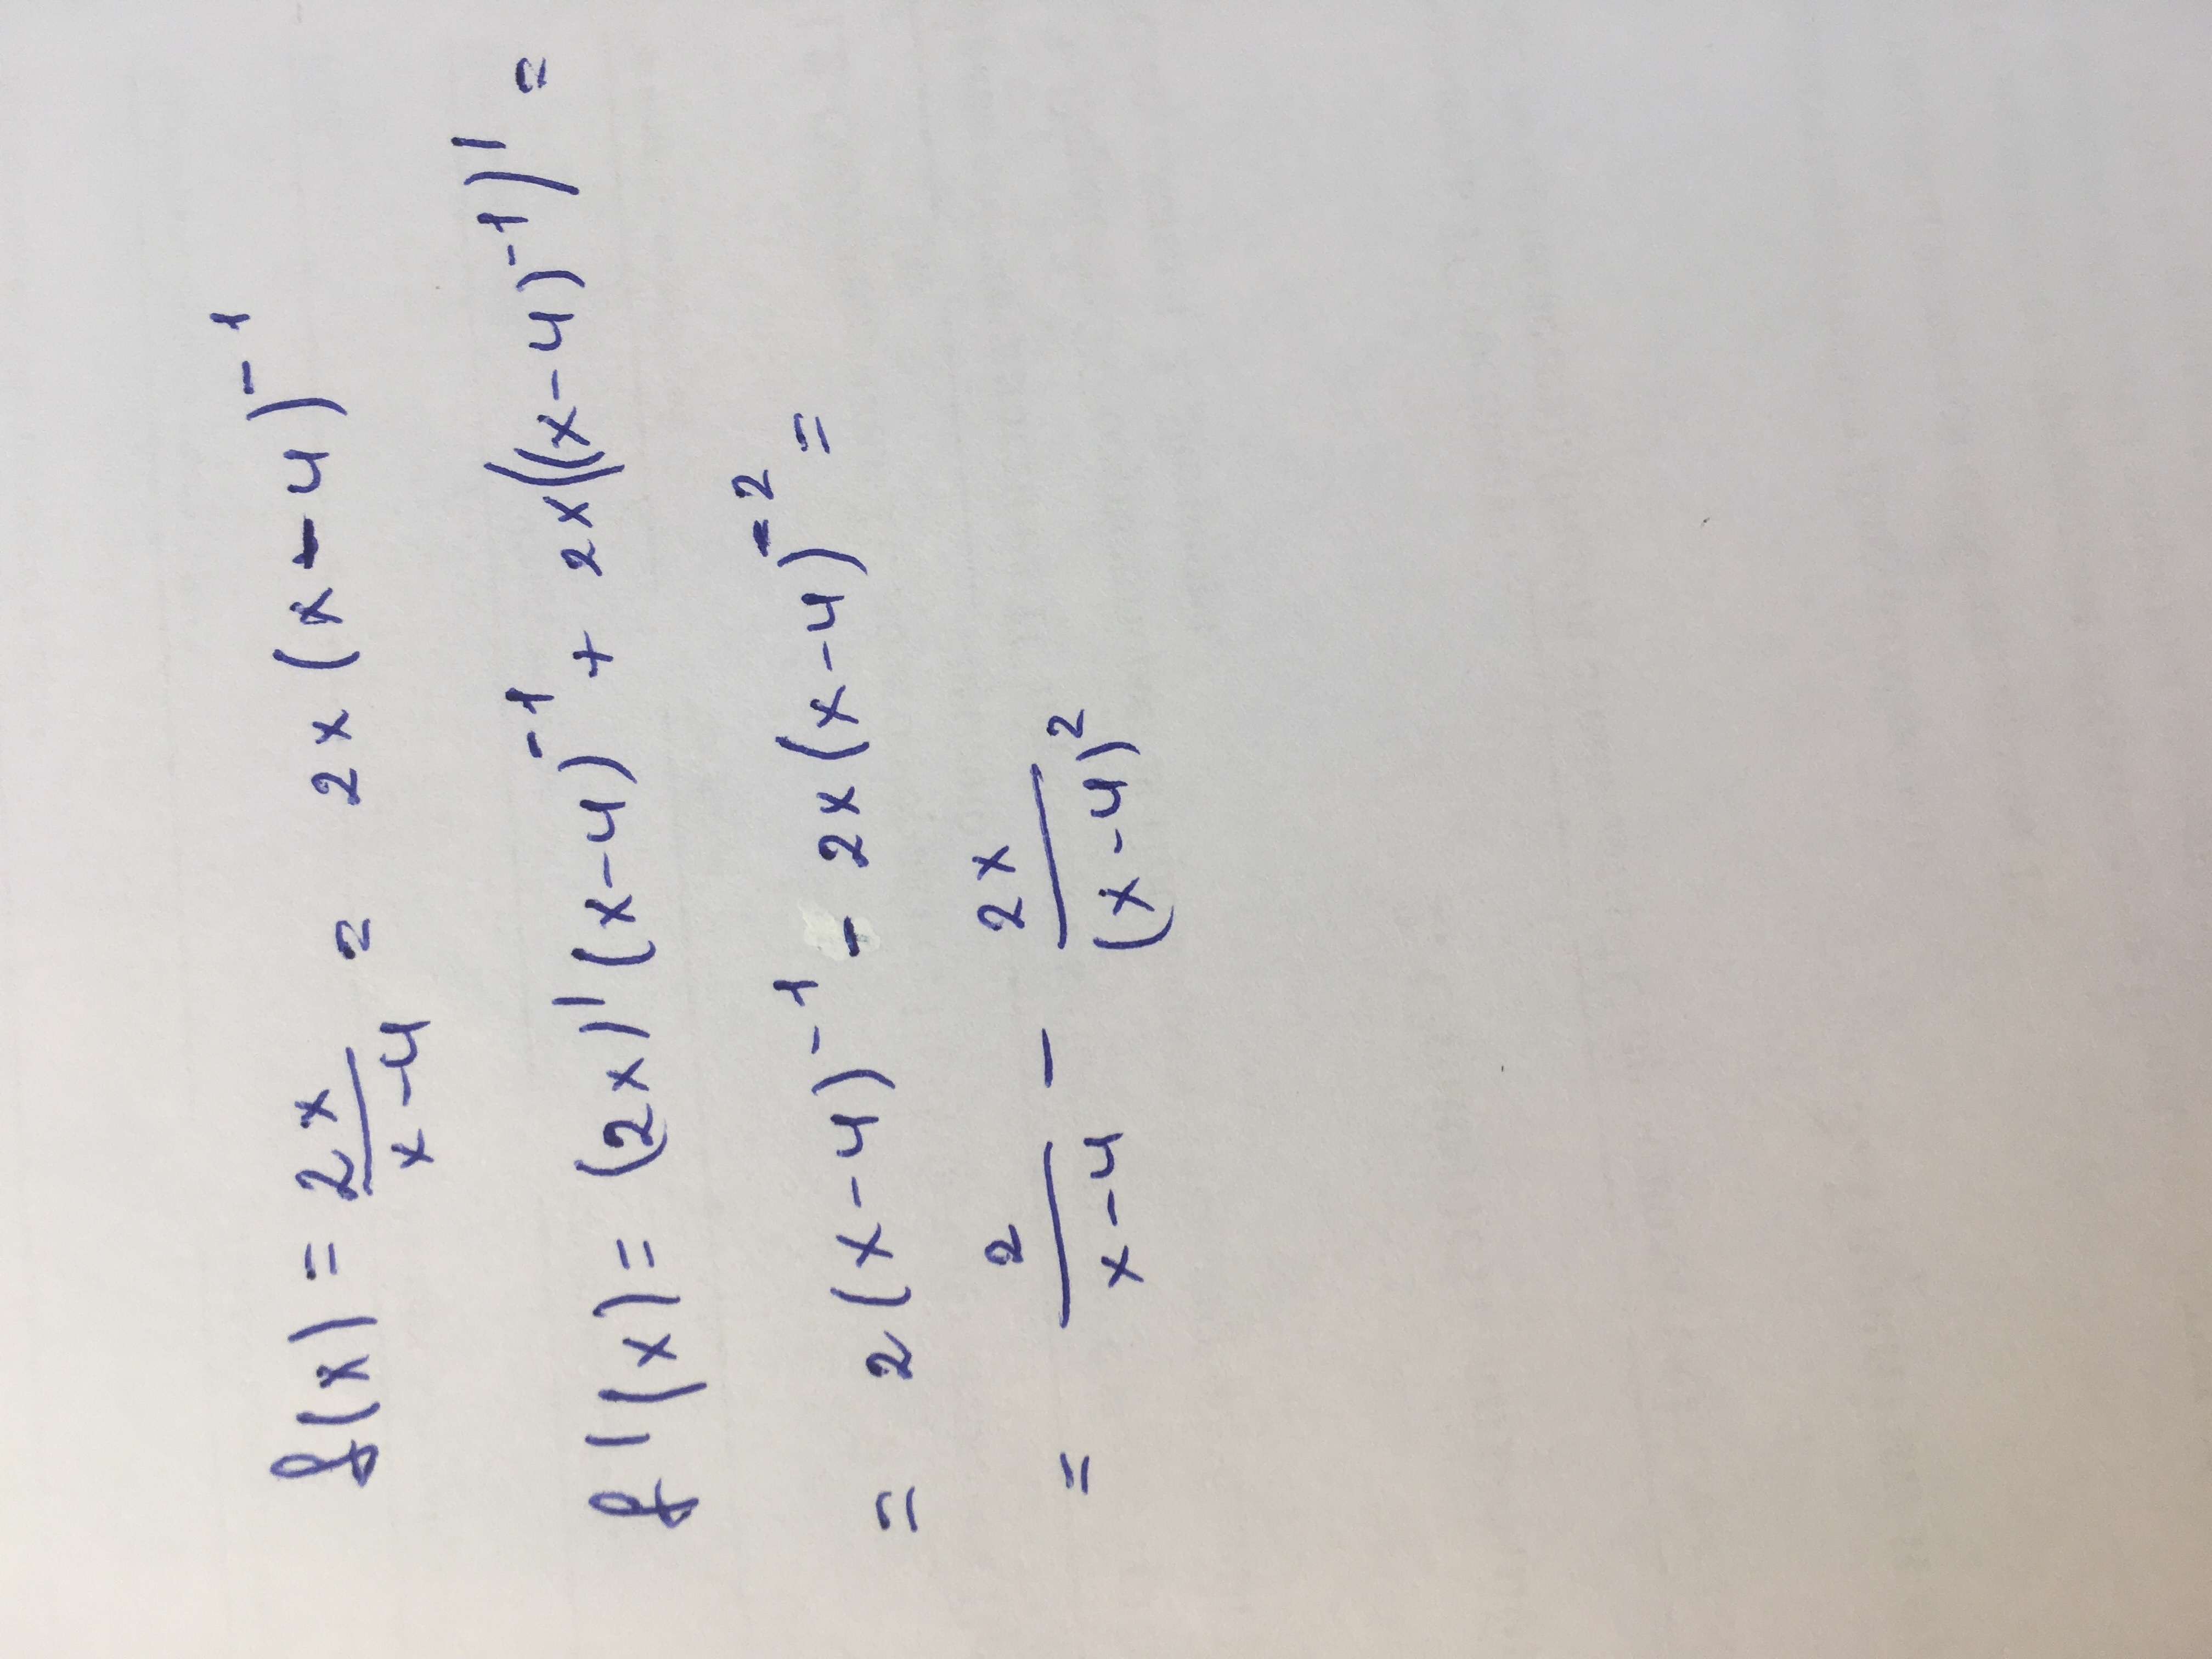 f(x) = \frac{2x}{x-4} = 2x(x-4)^{-1}
f'(x) = (2x)'(x-4)^{-1} + 2x((x-4)^{-1})' =
= 2(x-4)^{-1} - 2x(x-4)^{-2} =
= \frac{2}{x-4} - \frac{2x}{(x-4)^2}